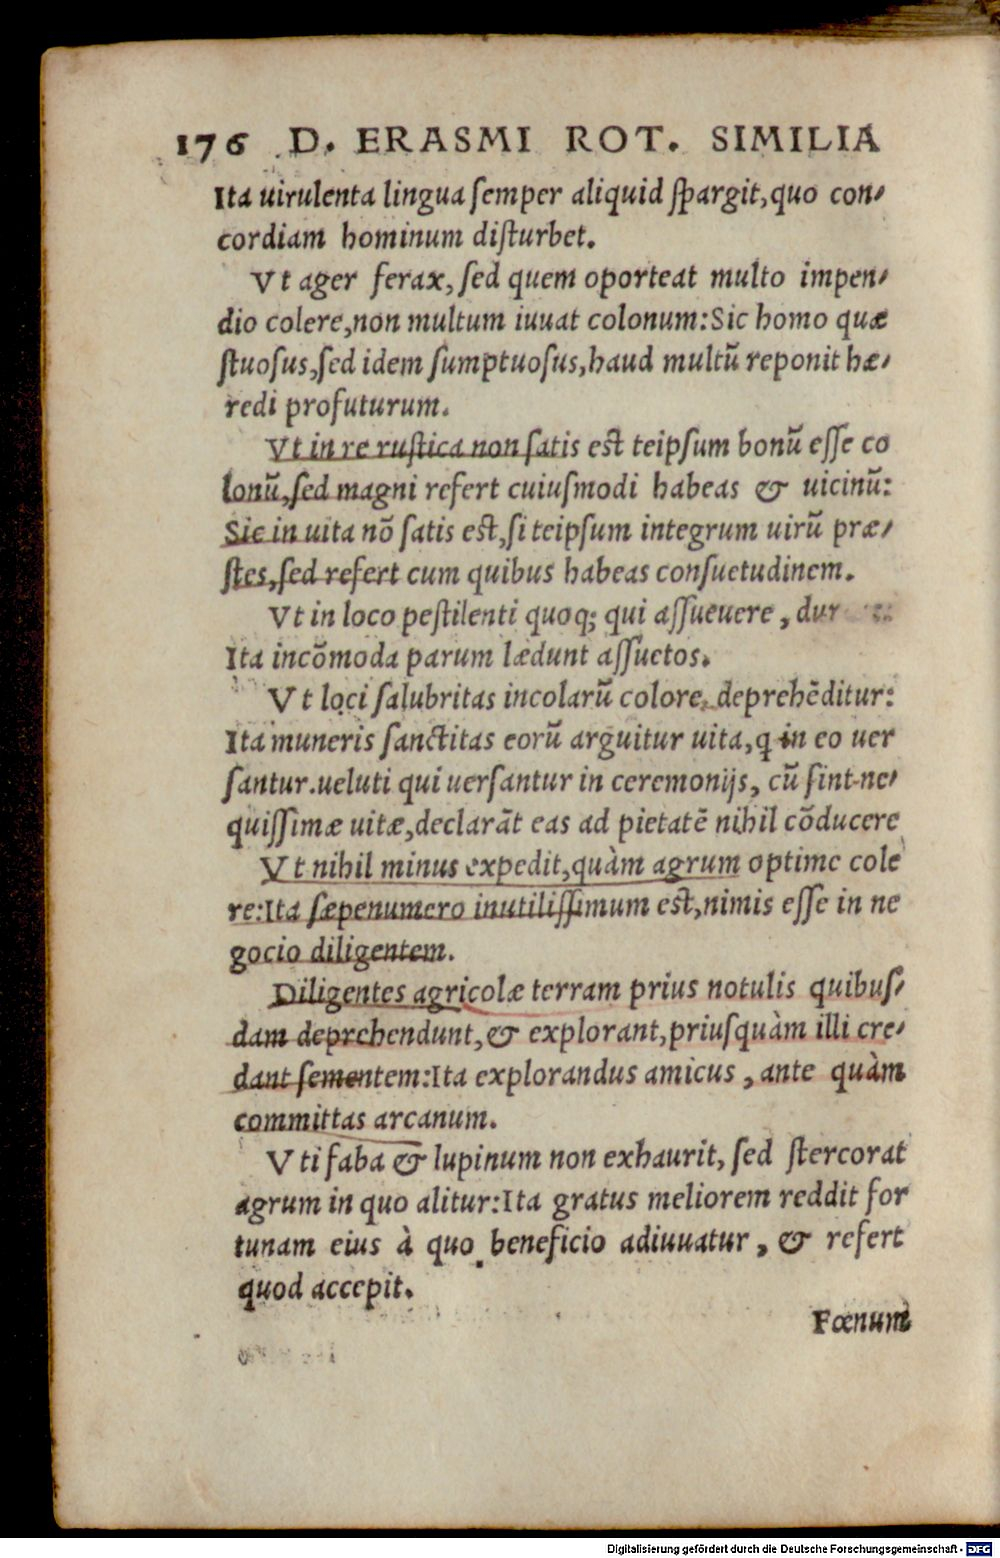 176 D. ERASMI ROT. SIMILIA
Ita uirulenta lingua semper aliquid spargit, quo con-
cordiam hominum disturbet.
Vt ager ferax, sed quem oporteat multo impen-
dio colere, non multum iuuat colonum: Sic homo quæ
stuosus, sed idem sumptuosus, haud multū reponit hæ-
redi profuturum.
Vt in re rustica non satis est teipsum bonū esse co
lonū, sed magni refert cuiusmodi habeas & uicinū:
Sic in uita nō satis est, si teipsum integrum uirū præ-
stes, sed refert cum quibus habeas consuetudinem.
Vt in loco pestilenti quoq; qui assueuere, dur
Ita incōmoda parum lædunt assuetos.
Vt loci salubritas incolarū colore deprehēditur:
Ita muneris sanctitas eorū arguitur uita, q in eo uer
santur. ueluti qui uersantur in ceremonijs, cū sint ne-
quissimæ uitæ, declarāt eas ad pietatē nihil cōducere
Vt nihil minus expedit, quàm agrum optime cole
re: Ita sæpenumero inutilissimum est, nimis esse in ne
gocio diligentem.
Diligentes agricolæ terram prius notulis quibus-
dam deprehendunt, & explorant, priusquàm illi cre-
dant sementem: Ita explorandus amicus, ante quàm
committas arcanum.
Vti faba & lupinum non exhaurit, sed stercorat
agrum in quo alitur: Ita gratus meliorem reddit for
tunam eius à quo beneficio adiuuatur, & refert
quod accepit.
Fœnum
Digitalisierung gefördert durch die Deutsche Forschungsgemeinschaft - DFG